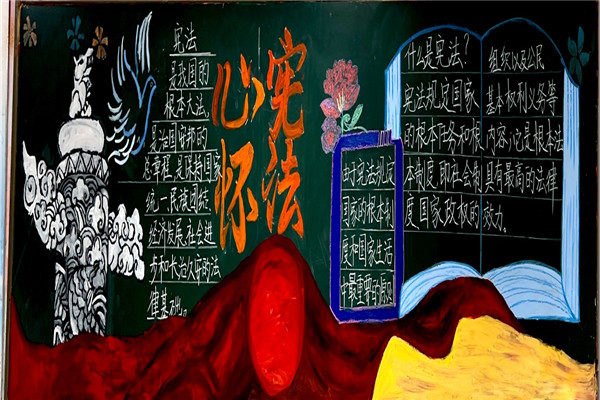 宪法
是我国的
根本大法,
是治国安邦的
总章程,是保持国家
统一民族团结
经济发展社会进
步和长治久安的法
律基础。
心怀
宪法
由于宪法规定
国家的根本制
度和国家生活
中最重要的原则
什么是宪法?
宪法规定国家
的根本任务和根
本制度,即社会制
度国家政权的
组织以及公民
基本权利义务等
内容,它是根本法
具有最高的法律
效力。